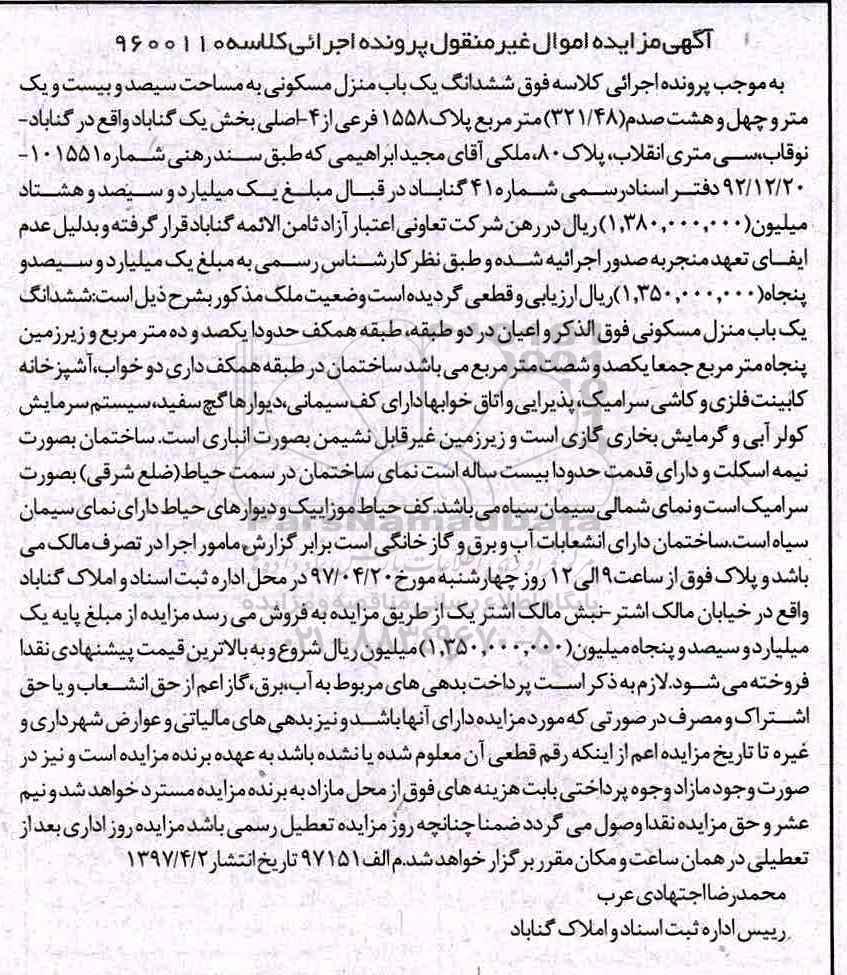 آگهی مزایده اموال غیر منقول پرونده اجرائی کلاسه ۹۶۰۰۱۱۰
به موجب پرونده اجرائی کلاسه فوق ششدانگ یک باب منزل مسکونی به مساحت سیصد و بیست و یک
متر و چهل و هشت صدم(۳۲۱/۴۸) متر مربع پلاک ۱۵۵۸ فرعی از ۴-اصلی بخش یک گناباد واقع در گناباد-
نوقاب،سی متری انقلاب، پلاک ۸۰، ملکی آقای مجید ابراهیمی که طبق سند رهنی شماره ۱۰۱۵۵۱-
۹۲/۱۲/۲۰ دفتر اسنادرسمی شماره ۴۱ گناباد در قبال مبلغ یک میلیارد و سیصد و هشتاد
میلیون(۱,۳۸۰,۰۰۰,۰۰۰)ریال در رهن شرکت تعاونی اعتبار آزاد ثامن الائمه گناباد قرار گرفته و بدلیل عدم
ایفای تعهد منجر به صدور اجرائیه شده و طبق نظر کارشناس رسمی به مبلغ یک میلیارد و سیصدو
پنجاه(۱,۳۵۰,۰۰۰,۰۰۰)ریال ارزیابی و قطعی گردیده است وضعیت ملک مذکور بشرح ذیل است:ششدانگ
یک باب منزل مسکونی فوق الذکر و اعیان در دو طبقه، طبقه همکف حدودا یکصد و ده متر مربع و زیرزمین
پنجاه متر مربع جمعا یکصد و شصت متر مربع می باشد ساختمان در طبقه همکف داری دو خواب،آشپزخانه
کابینت فلزی و کاشی سرامیک، پذیرایی و اتاق خوابها دارای کف سیمانی،دیوارها گچ سفید، سیستم سرمایش
کولر آبی و گرمایش بخاری گازی است و زیرزمین غیرقابل نشیمن بصورت انباری است. ساختمان بصورت
نیمه اسکلت و دارای قدمت حدودا بیست ساله است نمای ساختمان در سمت حیاط(ضلع شرقی) بصورت
سرامیک است و نمای شمالی سیمان سیاه می باشد. کف حیاط موزاییک و دیوارهای حیاط دارای نمای سیمان
سیاه است.ساختمان دارای انشعابات آب و برق و گاز خانگی است برابر گزارش مامور اجرا در تصرف مالک می
باشد و پلاک فوق از ساعت ۹ الی ۱۲ روز چهارشنبه مورخ ۹۷/۰۴/۲۰ در محل اداره ثبت اسناد و املاک گناباد
واقع در خیابان مالک اشتر -نبش مالک اشتر یک از طریق مزایده به فروش می رسد مزایده از مبلغ پایه یک
میلیارد و سیصد و پنجاه میلیون(۱,۳۵۰,۰۰۰,۰۰۰)میلیون ریال شروع و به بالاترین قیمت پیشنهادی نقدا
فروخته می شود.لازم به ذکر است پرداخت بدهی های مربوط به آب،برق،گاز اعم از حق انشعاب و یا حق
اشتراک و مصرف در صورتی که مورد مزایده دارای آنها باشد و نیز بدهی های مالیاتی و عوارض شهرداری و
غیره تا تاریخ مزایده اعم از اینکه رقم قطعی آن معلوم شده یا نشده باشد به عهده برنده مزایده است و نیز در
صورت وجود مازاد وجوه پرداختی بابت هزینه های فوق از محل مازاد به برنده مزایده مسترد خواهد شد و نیم
عشر و حق مزایده نقدا وصول می گردد ضمنا چنانچه روز مزایده تعطیل رسمی باشد مزایده روز اداری بعد از
تعطیلی در همان ساعت و مکان مقرر برگزار خواهد شد.م الف ۹۷۱۵۱ تاریخ انتشار ۱۳۹۷/۴/۲
محمدرضا اجتهادی عرب
رییس اداره ثبت اسناد و املاک گناباد
ParsNamadData
پایگاه اطلاع رسانی مناقصه و مزایده
۰۲۱-۸۸۳۴۹۶۷۰-۵